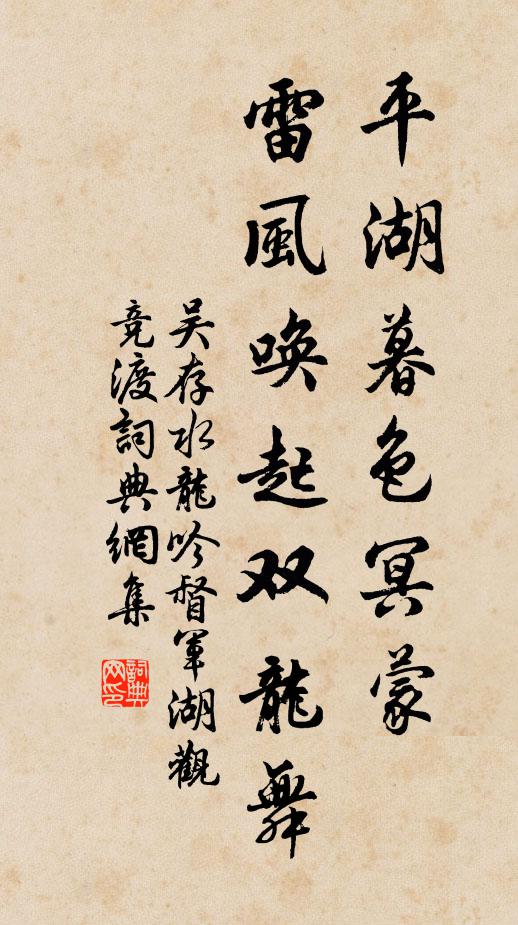 平湖暮色冥蒙
雷風唤起双龍舞
吴存水龍吟督軍湖觀
竞渡詞典網集
詞典网印